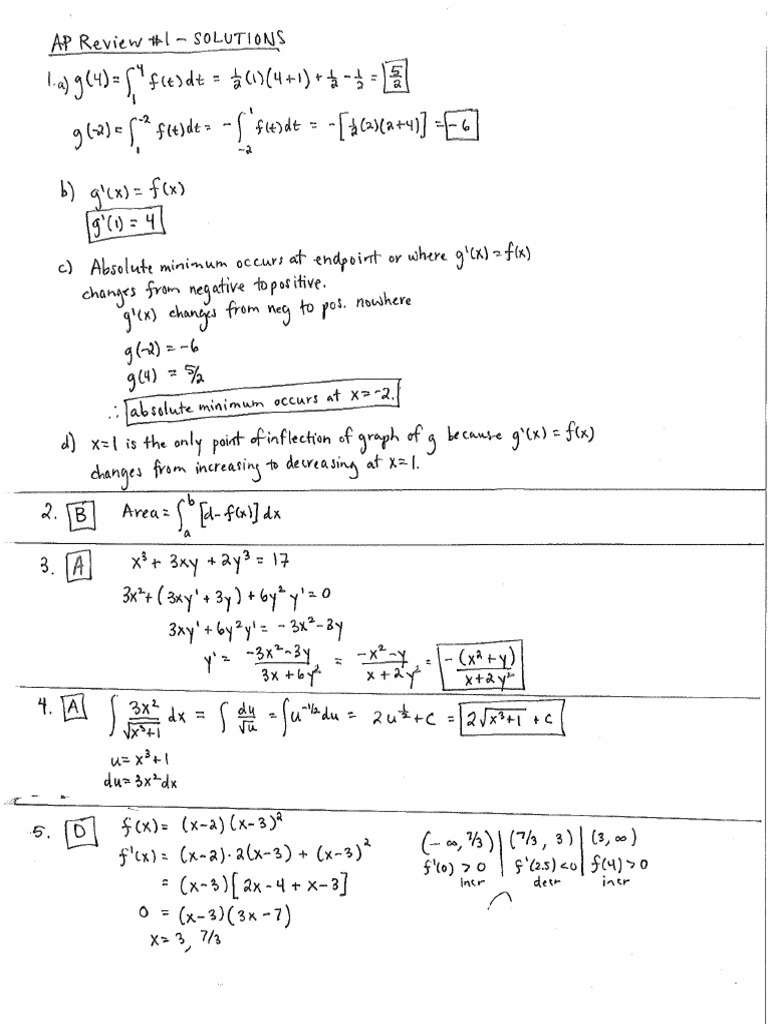 AP Review #1 - SOLUTIONS
1. a) g(4) = ∫₁⁴ f(t) dt = ½(1)(4+1) + ½ - ½ = 5/2
g(-2) = ∫₁⁻² f(t) dt = -∫₋₂¹ f(t) dt = -[½(2)(2+4)] = -6
b) g'(x) = f(x)
g'(1) = 4
c) Absolute minimum occurs at endpoint or where g'(x) = f(x)
changes from negative to positive.
g'(x) changes from neg to pos. nowhere
g(-2) = -6
g(4) = 5/2
∴ absolute minimum occurs at x = -2.
d) x=1 is the only point of inflection of graph of g because g'(x) = f(x)
changes from increasing to decreasing at x=1.
2. B Area = ∫ₐᵇ [d - f(x)] dx
3. A x³ + 3xy + 2y³ = 17
3x² + (3xy' + 3y) + 6y² y' = 0
3xy' + 6y²y' = -3x² - 3y
y' = (-3x² - 3y)/(3x + 6y²) = (-x² - y)/(x + 2y²) = -(x² + y)/(x + 2y²)
4. A ∫ 3x²/√(x³+1) dx = ∫ du/√u = ∫ u^(-1/2) du = 2u^(1/2) + C = 2√(x³+1) + C
u = x³ + 1
du = 3x² dx
5. D f(x) = (x-2)(x-3)²
f'(x) = (x-2)·2(x-3) + (x-3)²
= (x-3)[2x - 4 + x - 3]
0 = (x-3)(3x-7)
x = 3, 7/3
(-∞, 7/3) | (7/3, 3) | (3, ∞)
f'(0) > 0 | f'(2.5) < 0 | f(4) > 0
incr decr incr